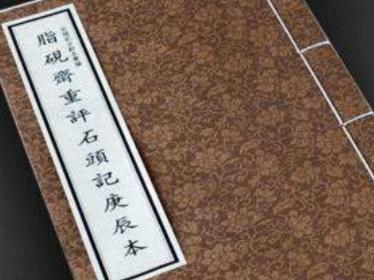 脂硯齋重評石頭記庚辰本